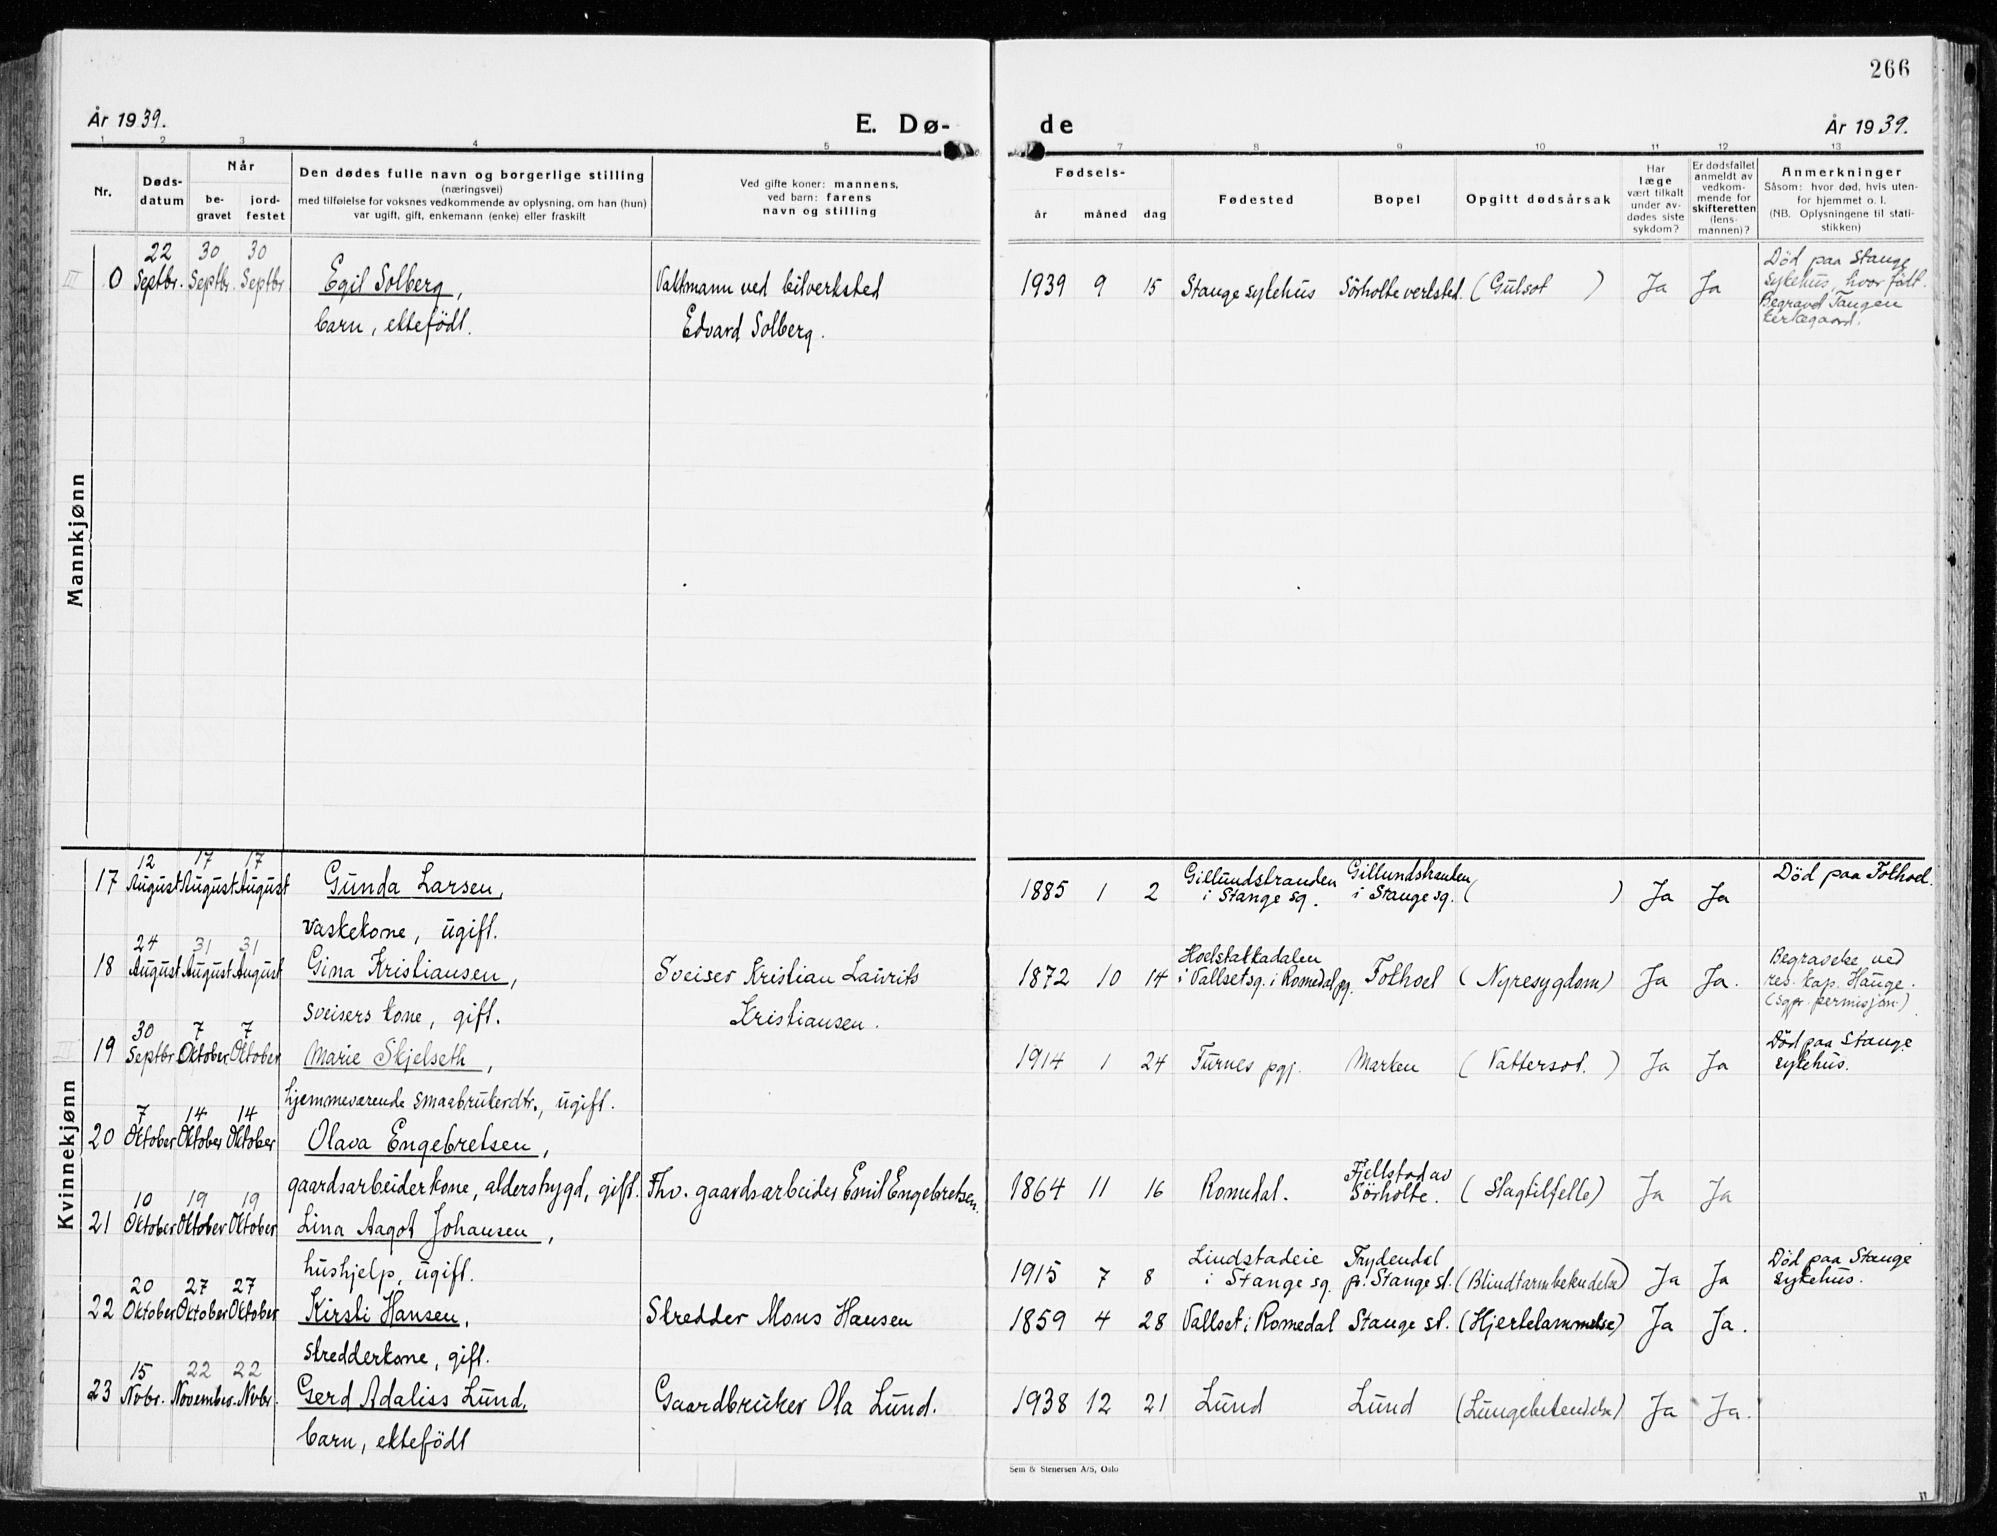 266
År 1939.
E. Dø-
de
År 1939.
1 2 3 4 5 7 8 9 10 11 12 13
Nr.
Døds-
datum
Når
be-
gravet
jord-
festet
Den dødes fulle navn og borgerlige stilling
(næringsvei)
med tilføielse for voksnes vedkommende av oplysning, om han (hun)
var ugift, gift, enkemann (enke) eller fraskilt
Ved gifte koner: mannens,
ved barn: farens
navn og stilling
Fødsels-
år måned dag
Fødested
Bopel
Opgitt dødsårsak
Har
læge
vært tilkalt
under av-
dødes siste
sykdom?
Er dødsfallet
anmeldt av
vedkom-
mende for
skifteretten
(lens-
mannen)?
Anmerkninger
Såsom: hvor død, hvis uten-
for hjemmet o. l.
(NB. Oplysningene til stati-
stikken)
Mannkjønn
22 30 30
III 0 Septbr. Septbr. Septbr
Egil Solberg,
barn, ektefödt.
Vaktmann ved bilverksted
Edvard Solberg.
1939 9 15 Stange sykehus Sörholte verksted. (Gulsot ) Ja Ja
Död paa Stange
sykehus, hvor födt.
Begravet Tangen
kirkegaard.
Kvinnekjønn
12 17 17
17 August August August
Gunda Larsen,
vaskekone, ugift.
1885 1 2
Gillundstranden
i Stange sg.
Gillundstranden
i Stange sg. ( ) Ja Ja
Död paa Folhoel.
24 31 31
18 August August August
Gina Kristiansen,
sveisers kone, gift.
Sveiser Kristian Laurits
Kristiansen.
1872 10 14
Hoelstakkadalen
i Vallset sg. i Romedal pg. Folhoel (Nyresygdom) Ja Ja.
Begravelse ved
res. kap. Hauge.
(sgpr. permisjon.)
30 7 7
II 19 Septbr. Oktober. Oktober
Marie Skjelseth,
hjemmeværende smaabrukerdtr., ugift.
1914 1 24 Furnes pgj. Marken (Vattersot.) Ja Ja
Död paa Stange
sykehus.
7 14 14
20 Oktober Oktober Oktober
Olava Engebretsen,
gaardsarbeiderkone, alderstrygd, gift.
Fhv. gaardsarbeider Emil Engebretsen.
1864 11 16 Romedal.
Fjellstad av
Sörholte. (Slagtilfelle) Ja Ja
10 19 19
21 Oktober Oktober Oktober
Lina Aagot Johansen,
hushjelp, ugift.
1915 7 8
Lindstadeie
i Stange sg.
Frydendal
pr. Stange st. (Blindtarmbetendelse) Ja Ja
Död paa Stange
sykehus.
20 27 27
22 Oktober Oktober Oktober
Kirsti Hansen,
skredderkone, gift.
Skredder Mons Hansen
1859 4 28 Vallset i Romedal Stange st. (Hjertelammelse) Ja Ja.
15 22 22
23 Novbr. November. Novbr.
Gerd Adaliss Lund,
barn, ektefödt
Gaardbruker Ola Lund.
1938 12 21 Lund Lund (Lungebetendelse) Ja Ja.
Sem & Stenersen A/S, Oslo